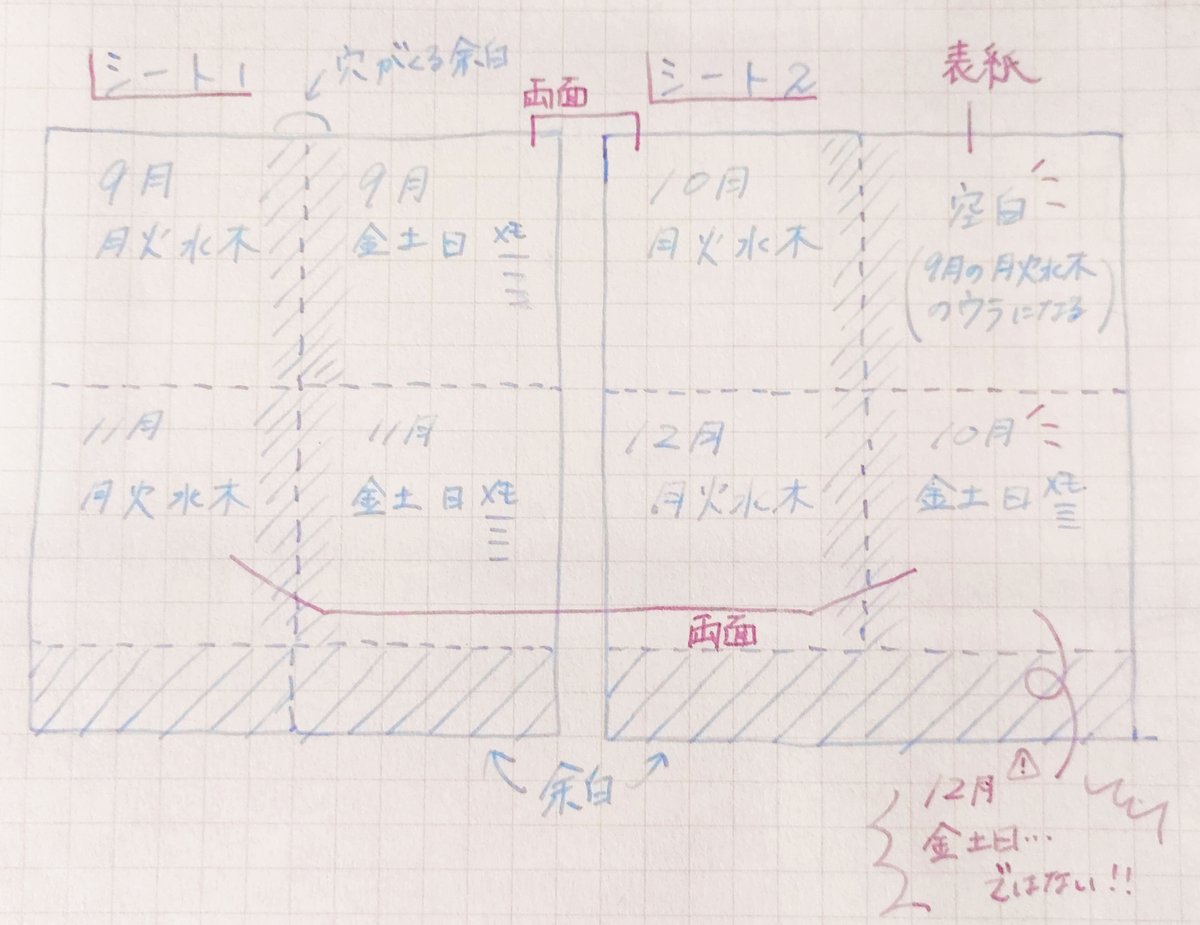 シート1
穴がくる余白
両面
シート2
表紙
9月
月火水木
9月
金土日 メモ
10月
月火水木
空白
(9月の月火水木
のウラになる)
11月
月火水木
11月
金土日 メモ
12月
月火水木
10月
金土日 メモ
両面
余白
12月
金土日…
ではない!!